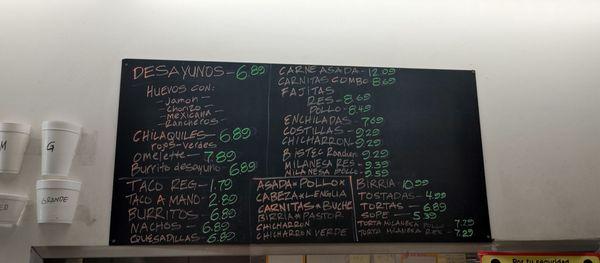 DESAYUNOS - 6.89
HUEVOS CON:
Jamon
chorizo
mexicana
Rancheros
CHILAQUILES - 6.89
rojos-verdes
omelette - 7.89
Burrito desayuno 6.89
CARNE ASADA - 12.09
CARNITAS COMBO 8.69
FAJITAS
RES - 8.69
POLLO - 8.49
ENCHILADAS - 7.69
COSTILLAS - 9.29
CHICHARRON - 9.29
BISTEC Ranchero 9.29
MILANESA RES - 9.39
MILANESA POLLO - 9.39
TACO REG - 1.79
TACO A MANO - 2.89
BURRITOS - 6.89
NACHOS - 6.89
QUESADILLAS - 6.89
ASADA * POLLO *
CABEZA * LENGUA
CARNITAS * BUCHE
BIRRIA * PASTOR
CHICHARRON
CHICHARRON VERDE
BIRRIA - 10.99
TOSTADAS - 4.99
TORTAS - 6.89
SOPE - 5.39
TORTA MILANESA POLLO - 7.29
TORTA MILANESA RES - 7.29
M
G
GRANDE
Por tu seguridad